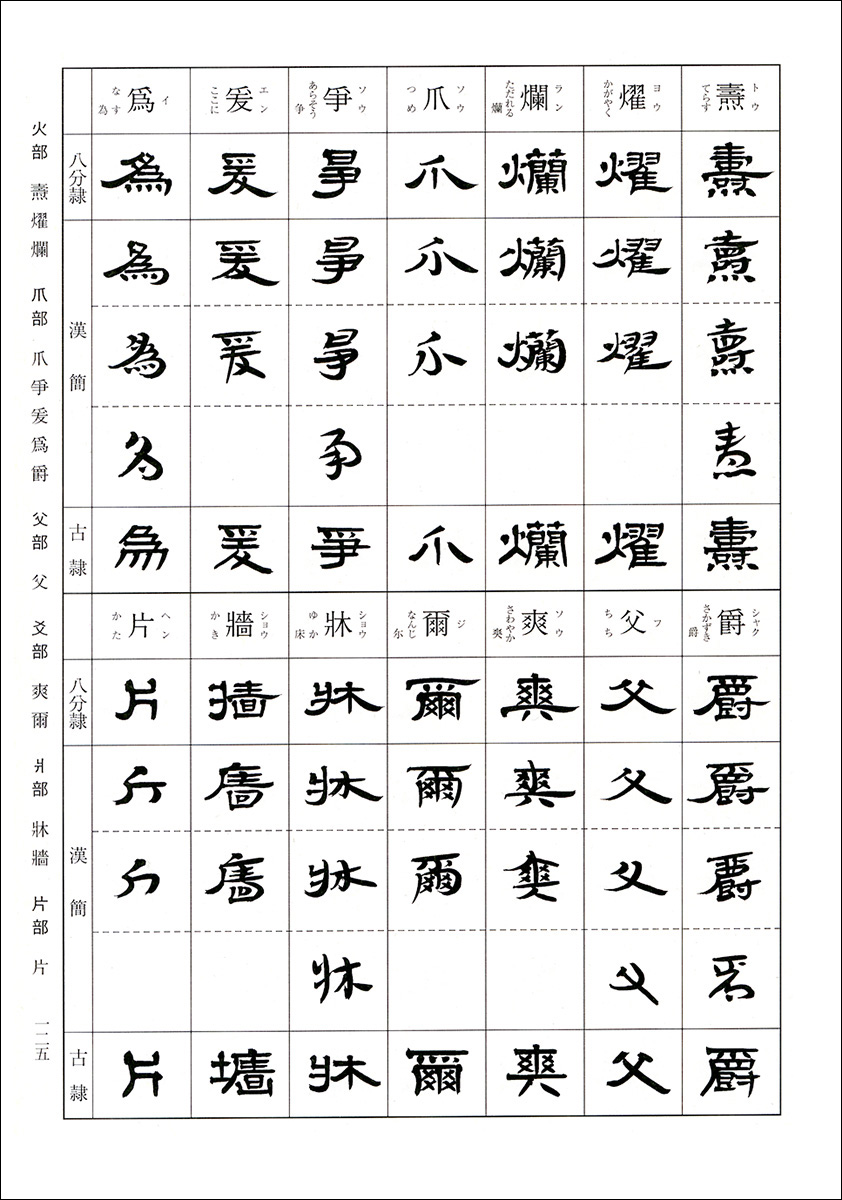 トウ 燾 てらす
ヨウ 燿 かがやく
ラン 爛 ただれる 爛
ソウ 爪 つめ
ソウ 爭 あらそう 争
エン 爰 ここに
イ 爲 なす 為
八分隷
燾 燿 爛 爪 爭 爰 爲
漢簡
燾 燿 爛 爪 爭 爰 爲
燾 燿 爛 爪 爭 爰 爲
燾 爭 爲
古隷
燾 燿 爛 爪 爭 爰 爲
シャク 爵 さかずき 爵
フ 父 ちち
ソウ 爽 さわやか
ジ 爾 なんじ 尔
ショウ 牀 ゆか 床
ショウ 牆 かき
ヘン 片 かた
八分隷
爵 父 爽 爾 牀 牆 片
漢簡
爵 父 爽 爾 牀 牆 片
爵 父 爽 爾 牀 牆 片
爵 父 牀
古隷
爵 父 爽 爾 牀 牆 片
火部 燾燿爛 爪部 爪爭爰爲爵 父部 父 爻部 爽爾 爿部 牀牆 片部 片 一二五